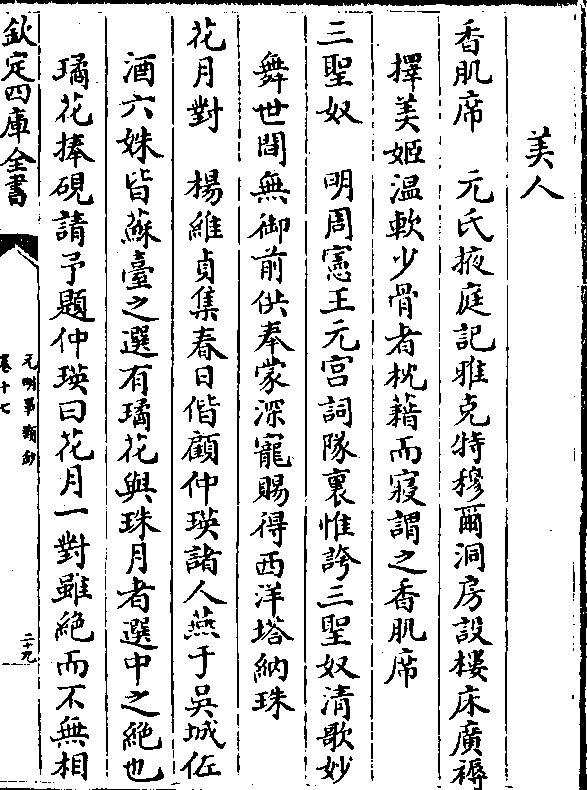 美人
香肌席　元氏掖庭記雅克特穆爾洞房設樓床廣褥
擇美姬温軟少骨者枕藉而寢謂之香肌席
三聖奴　明周憲王元宫詞隊裏惟誇三聖奴清歌妙
舞世間無御前供奉蒙深寵賜得西洋塔納珠
花月對　楊維貞集春日偕顧仲瑛諸人燕于吳城佐
酒六姝皆蘇臺之選有璚花與珠月者選中之絶也
璚花捧硯請予題仲瑛曰花月一對雖絶而不無相
欽定四庫全書
元明事類鈔
卷十七
二十九